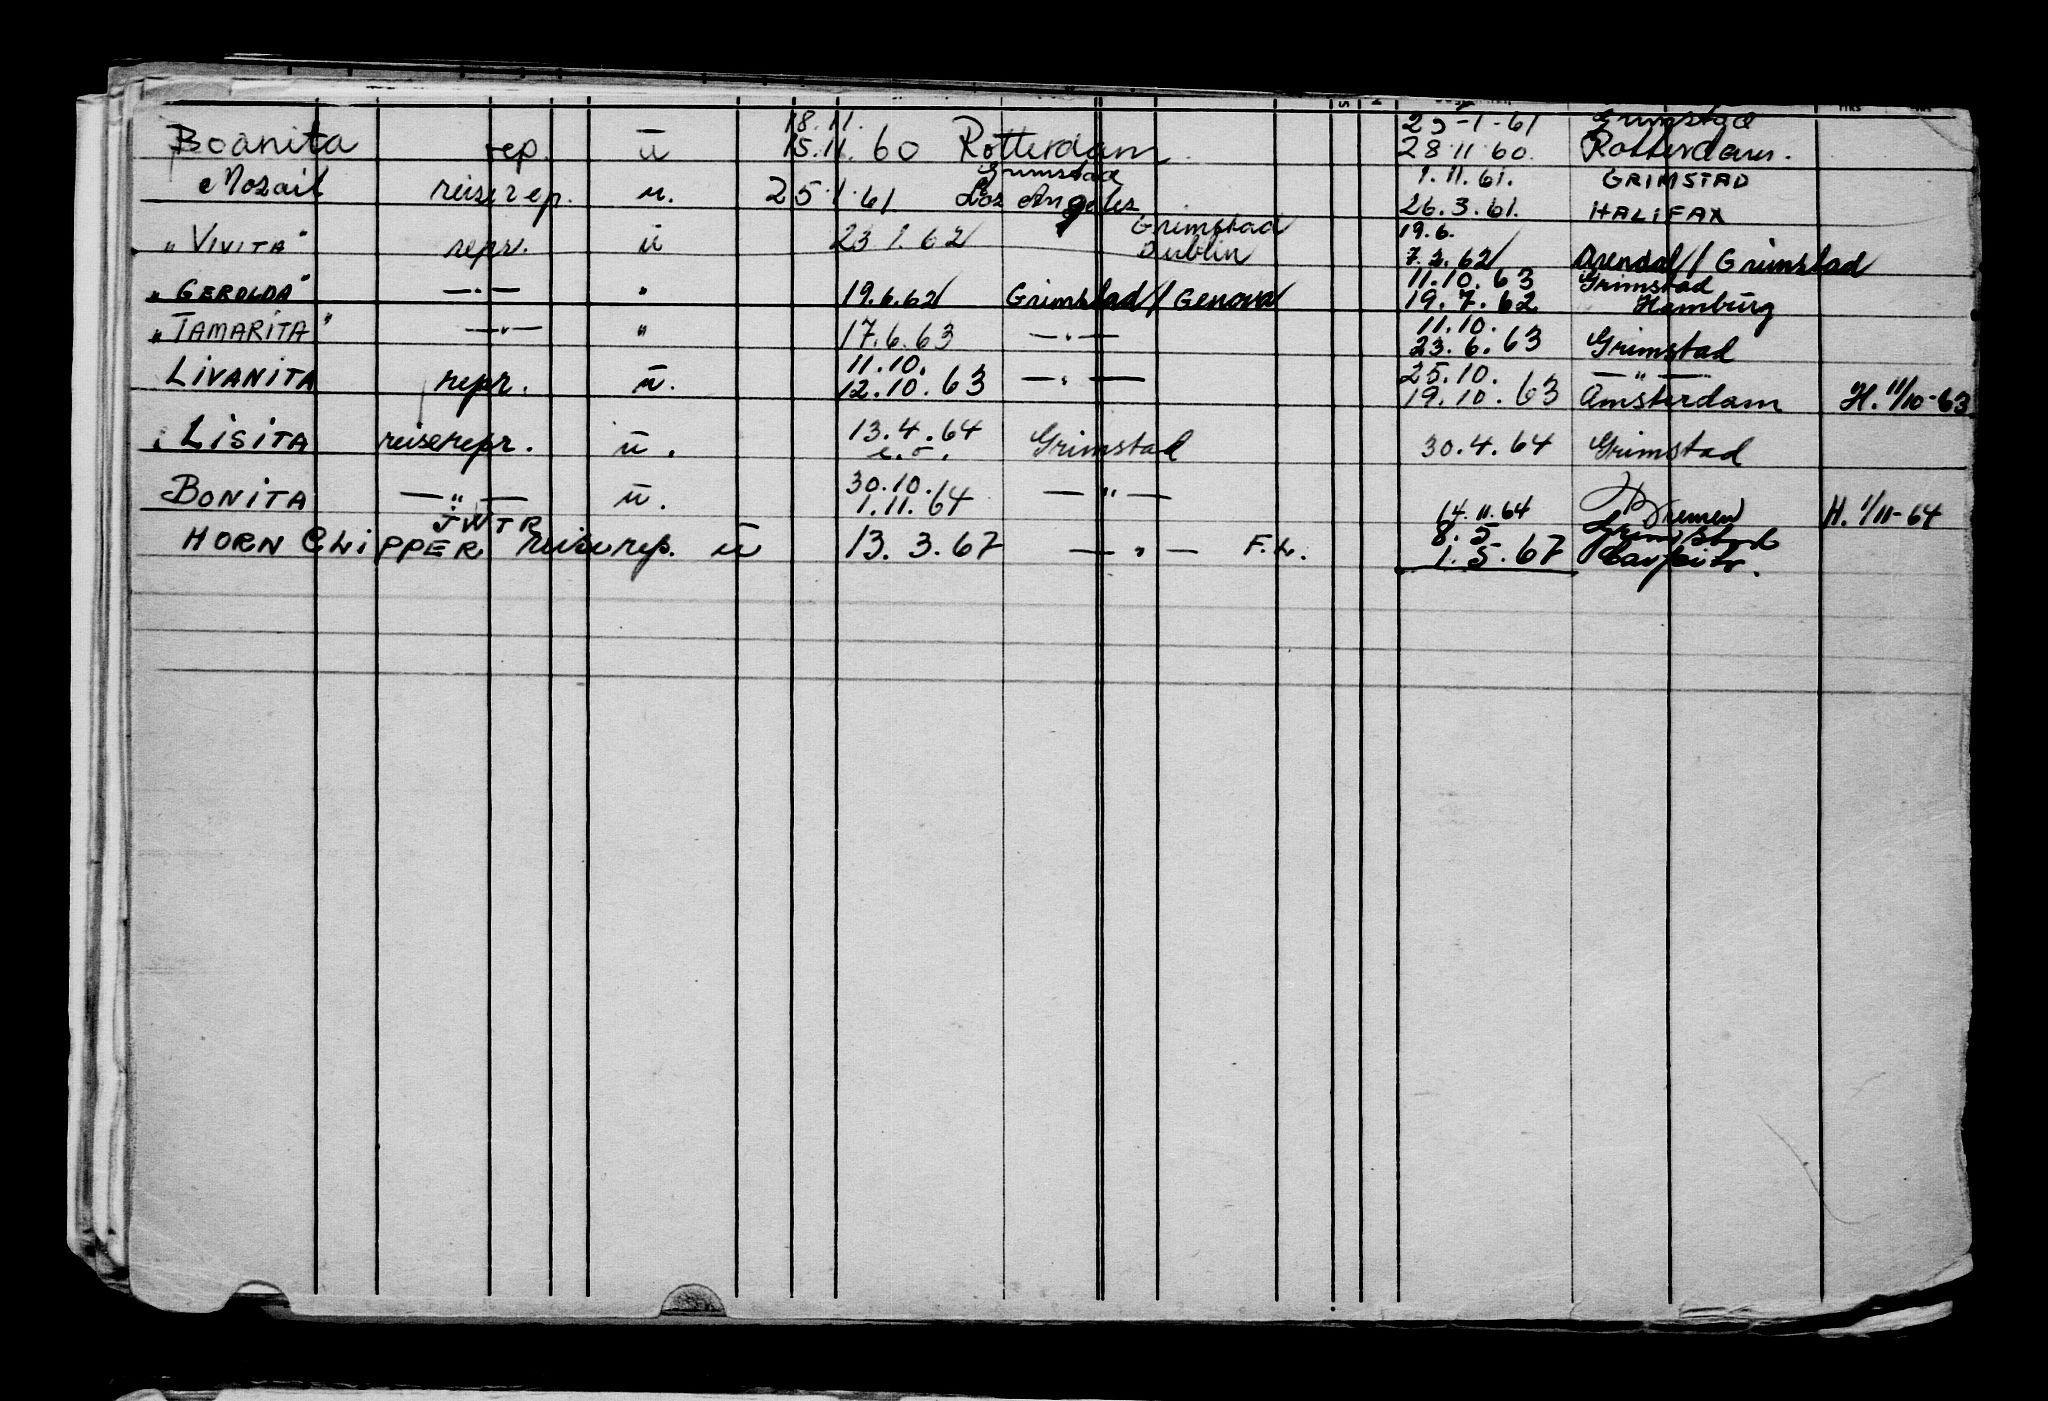 18.11. 25-1-61 Grimstad
Boanita rep. ū 15.11.60 Rotterdam 28.11.60. Rotterdam.
Grimstad 1.11.61. GRIMSTAD
Mozail reiserep. u. 25.1.61 Los Angeles 26.3.61. HALIFAX
Grimstad 19.6.
"VIVITA" repr. ū 23.1.62 Dublin 7.2.62 Arendal / Grimstad
11.10.63 Grimstad
"GEROLDA" —"— " 19.6.62 Grimstad / Genova 19.7.62 Hamburg
11.10.
"TAMARITA" —"— " 17.6.63 —"— 23.6.63 Grimstad
11.10. 25.10. —"—
LIVANITA repr. ū. 12.10.63 —"— 19.10.63 Amsterdam H. 11/10-63
LISITA reiserepr. ū. 13.4.64 Grimstad 30.4.64 Grimstad
e.o.
30.10.
BONITA —"— ū. 1.11.64 —"— 14.11.64 Bremen H. 1/11-64
JWTR 8.5 Grimstad
HORN CLIPPER reiserep. ū 13.3.67 —"— F.L. 1.5.67